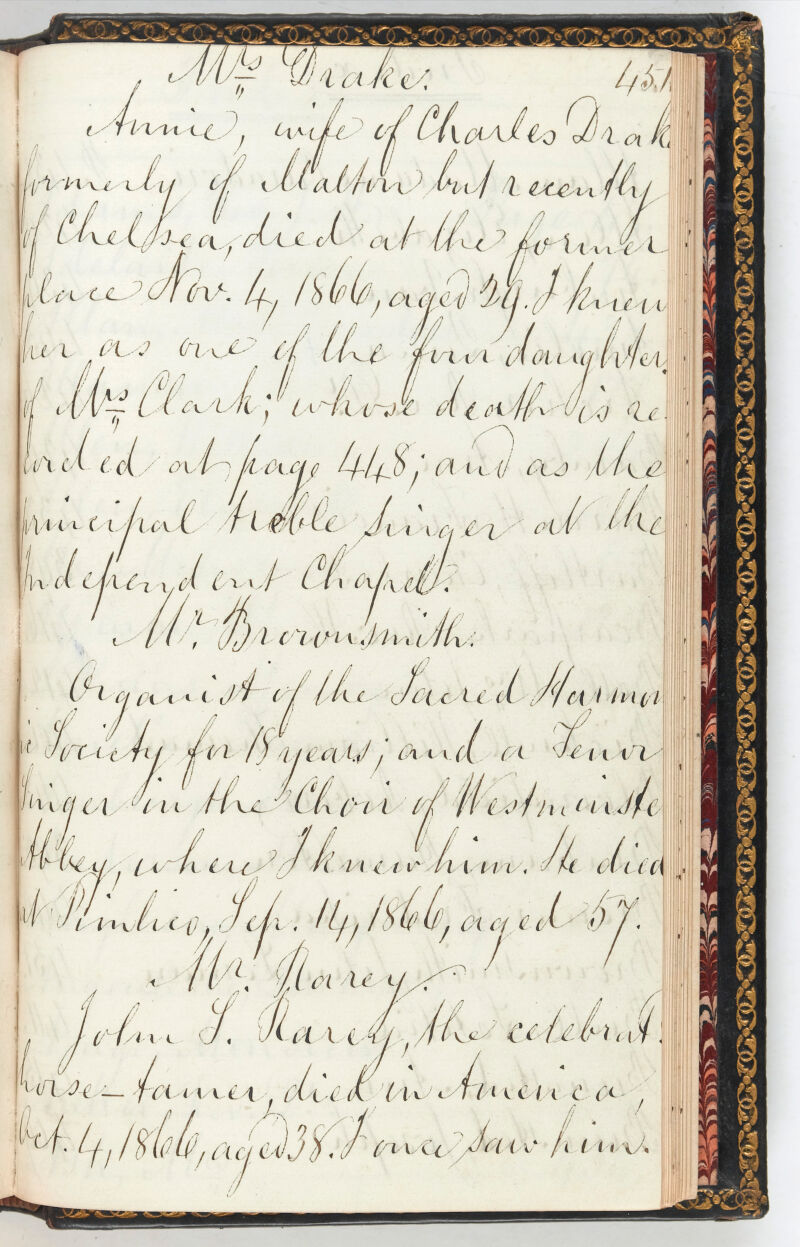 Mrs Drake. 451
Annie, wife of Charles Drake
formerly of Malton but recently
of Chelsea, died at the former
place Nov. 4, 1866, aged 29. I knew
her as one of the four daughters
of Mrs Clark; whose death is re
corded at page 448; and as the
principal treble singer at the
Independent Chapel.
Mr. Brownsmith.
Organist of the Sacred Harmon
ic Society for 18 years; and a Tenor
Singer in the Choir of Westminster
Abbey, where I knew him. He died
at Pimlico, Sep. 14, 1866, aged 57.
Mr. Rarey.
John S. Rarey, the celebrat
horse-tamer, died in America,
Oct. 4, 1866, aged 38. I once saw him.